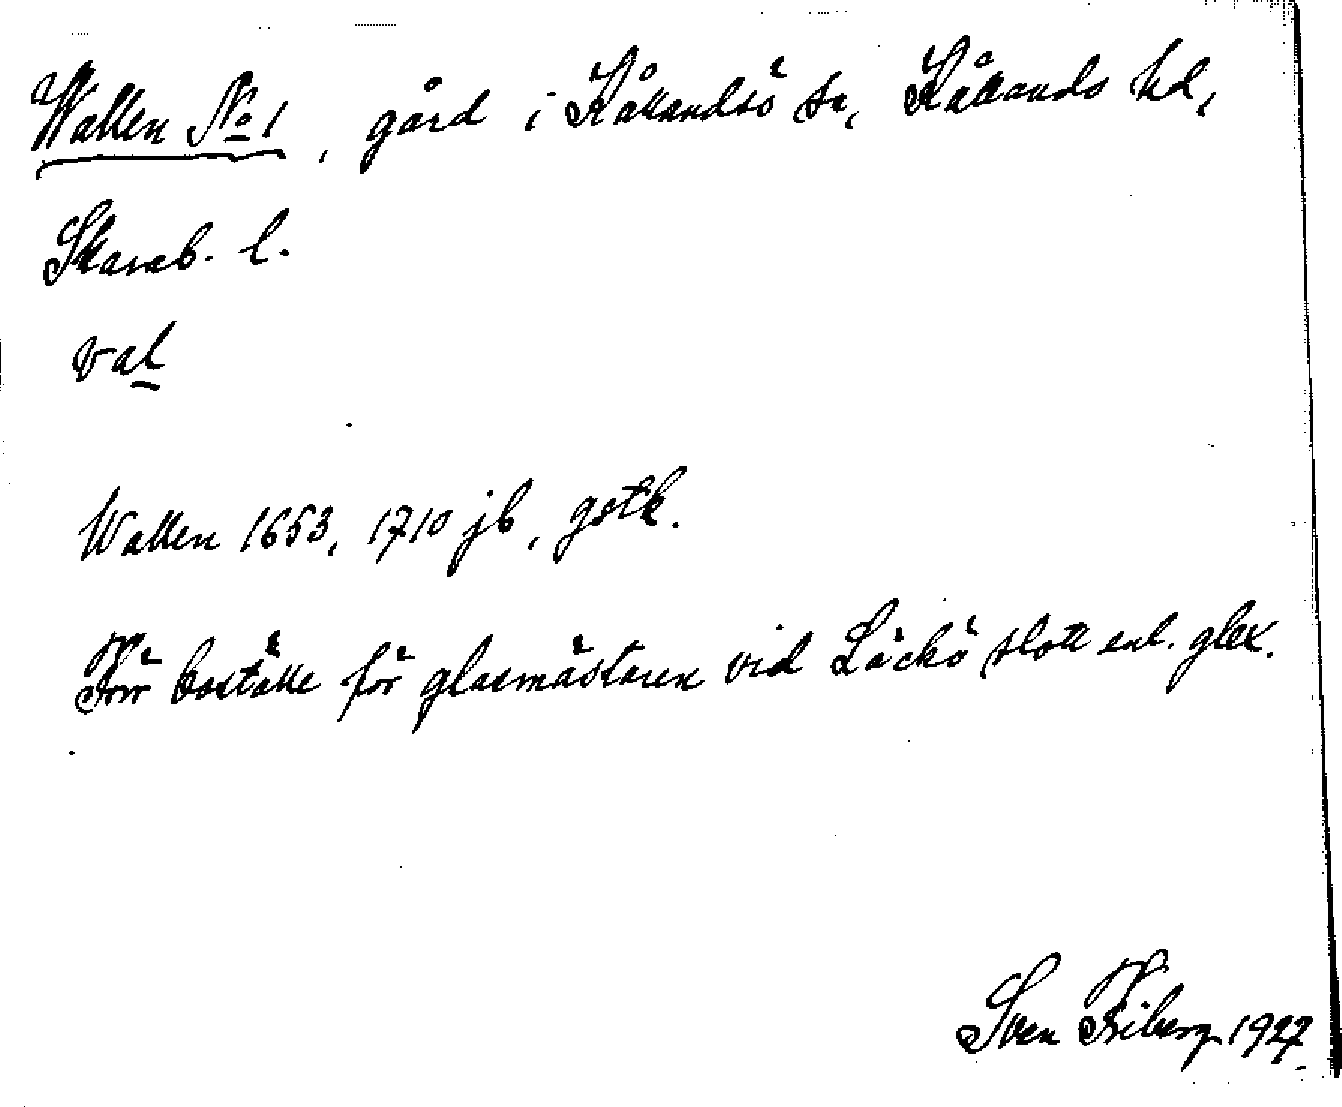 Wallen No 1, gård i Kållandsö sn, Kållands hd,
Skarab. l.
val
Wallen 1653, 1710 jb, gstk.
Förr boställe för glasmästaren vid Läckö slott enl. glex.
Sven Friberg 1927